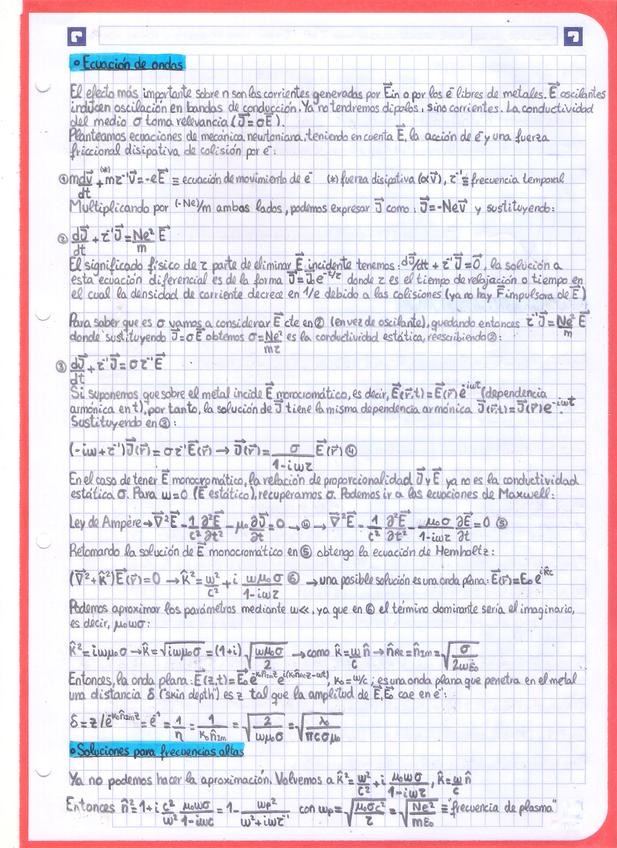 • Ecuación de ondas
El efecto más importante sobre n son las corrientes generadas por E⃗in o por los e⁻ libres de metales. E⃗ oscilantes
inducen oscilación en bandas de conducción. Ya no tendremos dipolos, sino corrientes. La conductividad
del medio σ toma relevancia (J⃗=σE⃗).
Planteamos ecuaciones de mecánica newtoniana, teniendo en cuenta E⃗, la acción de e⁻ y una fuerza
friccional disipativa de colisión por e⁻:
① m dv⃗/dt + (*) mτ⁻¹v⃗ = -eE⃗ ≡ ecuación de movimiento de e⁻ (*) fuerza disipativa (αv⃗), τ⁻¹ ≡ frecuencia temporal
Multiplicando por (-Ne)/m ambos lados, podemos expresar J⃗ como: J⃗=-Nev⃗ y sustituyendo:
② dJ⃗/dt + τ⁻¹J⃗ = Ne²/m E⃗
El significado físico de τ parte de eliminar E⃗ incidente tenemos: dJ⃗/dt + τ⁻¹J⃗=0⃗, la solución a
esta ecuación diferencial es de la forma J⃗=J⃗₀e^(-t/τ) donde τ es el tiempo de relajación o tiempo en
el cual la densidad de corriente decrece en 1/e debido a las colisiones (ya no hay F⃗ impulsora de E⃗)
Para saber que es σ vamos a considerar E⃗ cte en ② (en vez de oscilante), quedando entonces τ⁻¹J⃗=Ne²/m E⃗
donde sustituyendo J⃗=σE⃗ obtemos σ=Ne²/mτ es la conductividad estática, reescribiendo ②:
③ dJ⃗/dt + τ⁻¹J⃗ = στ⁻¹E⃗
Si suponemos que sobre el metal incide E⃗ monocromático, es decir, E⃗(r⃗,t)=E⃗(r⃗)e^(-iωt) (dependencia
armónica en t), por tanto, la solución de J⃗ tiene la misma dependencia armónica J⃗(r⃗,t)=J⃗(r⃗)e^(-iωt)
Sustituyendo en ③:
(-iω+τ⁻¹)J⃗(r⃗)=στ⁻¹E⃗(r⃗) → J⃗(r⃗)= σ/(1-iωτ) E⃗(r⃗) ④
En el caso de tener E⃗ monocromático, la relación de proporcionalidad J⃗ y E⃗ ya no es la conductividad
estática σ. Para ω=0 (E⃗ estático), recuperamos σ. Podemos ir a las ecuaciones de Maxwell:
Ley de Ampère → ∇⃗²E⃗ - 1/c² ∂²E⃗/∂t² - μ₀ ∂J⃗/∂t = 0 → ④ → ∇⃗²E⃗ - 1/c² ∂²E⃗/∂t² - μ₀σ/(1-iωτ) ∂E⃗/∂t = 0 ⑤
Retomando la solución de E⃗ monocromático en ⑤ obtengo la ecuación de Hemholtz:
(∇⃗²+k̂²)E⃗(r⃗)=0 → k̂²= ω²/c² + i ωμ₀σ/(1-iωτ) ⑥ → una posible solución es una onda plana: E⃗(r⃗)=E₀e^(ik̂r⃗)
Podemos aproximar los parámetros mediante ω<<, ya que en ⑥ el término dominante sería el imaginario,
es decir, μ₀ωσ:
k̂²=iωμ₀σ → k̂=√(iωμ₀σ)=(1+i)√(ωμ₀σ/2) → como k̂=ω/c n̂ → n̂Re=n̂Im=√(σ/2ωε₀)
Entonces, la onda plana: E⃗(z,t)=E⃗₀e^(-k₀n̂Im z)e^(i(k₀n̂Re z-ωt)), k₀=ω/c; es una onda plana que penetra en el metal
una distancia δ ("skin depth") es z tal que la amplitud de E⃗, E⃗₀ cae en e⁻¹:
δ=z/e^(-k₀n̂Im z)=e⁻¹=1/η=1/(k₀n̂Im)=√(2/ωμ₀σ)=√(λ₀/πcσμ₀)
• Soluciones para frecuencias altas
Ya no podemos hacer la aproximación. Volvemos a k̂²=ω²/c²+i μ₀ωσ/(1-iωτ), k̂=ω/c n̂
Entonces n̂²=1+i c²/ω² μ₀ωσ/(1-iωτ)=1- ωp²/(ω²+iωτ⁻¹) con ωp=√(μ₀σc²/τ)=√(Ne²/mε₀) ≡ "frecuencia de plasma"